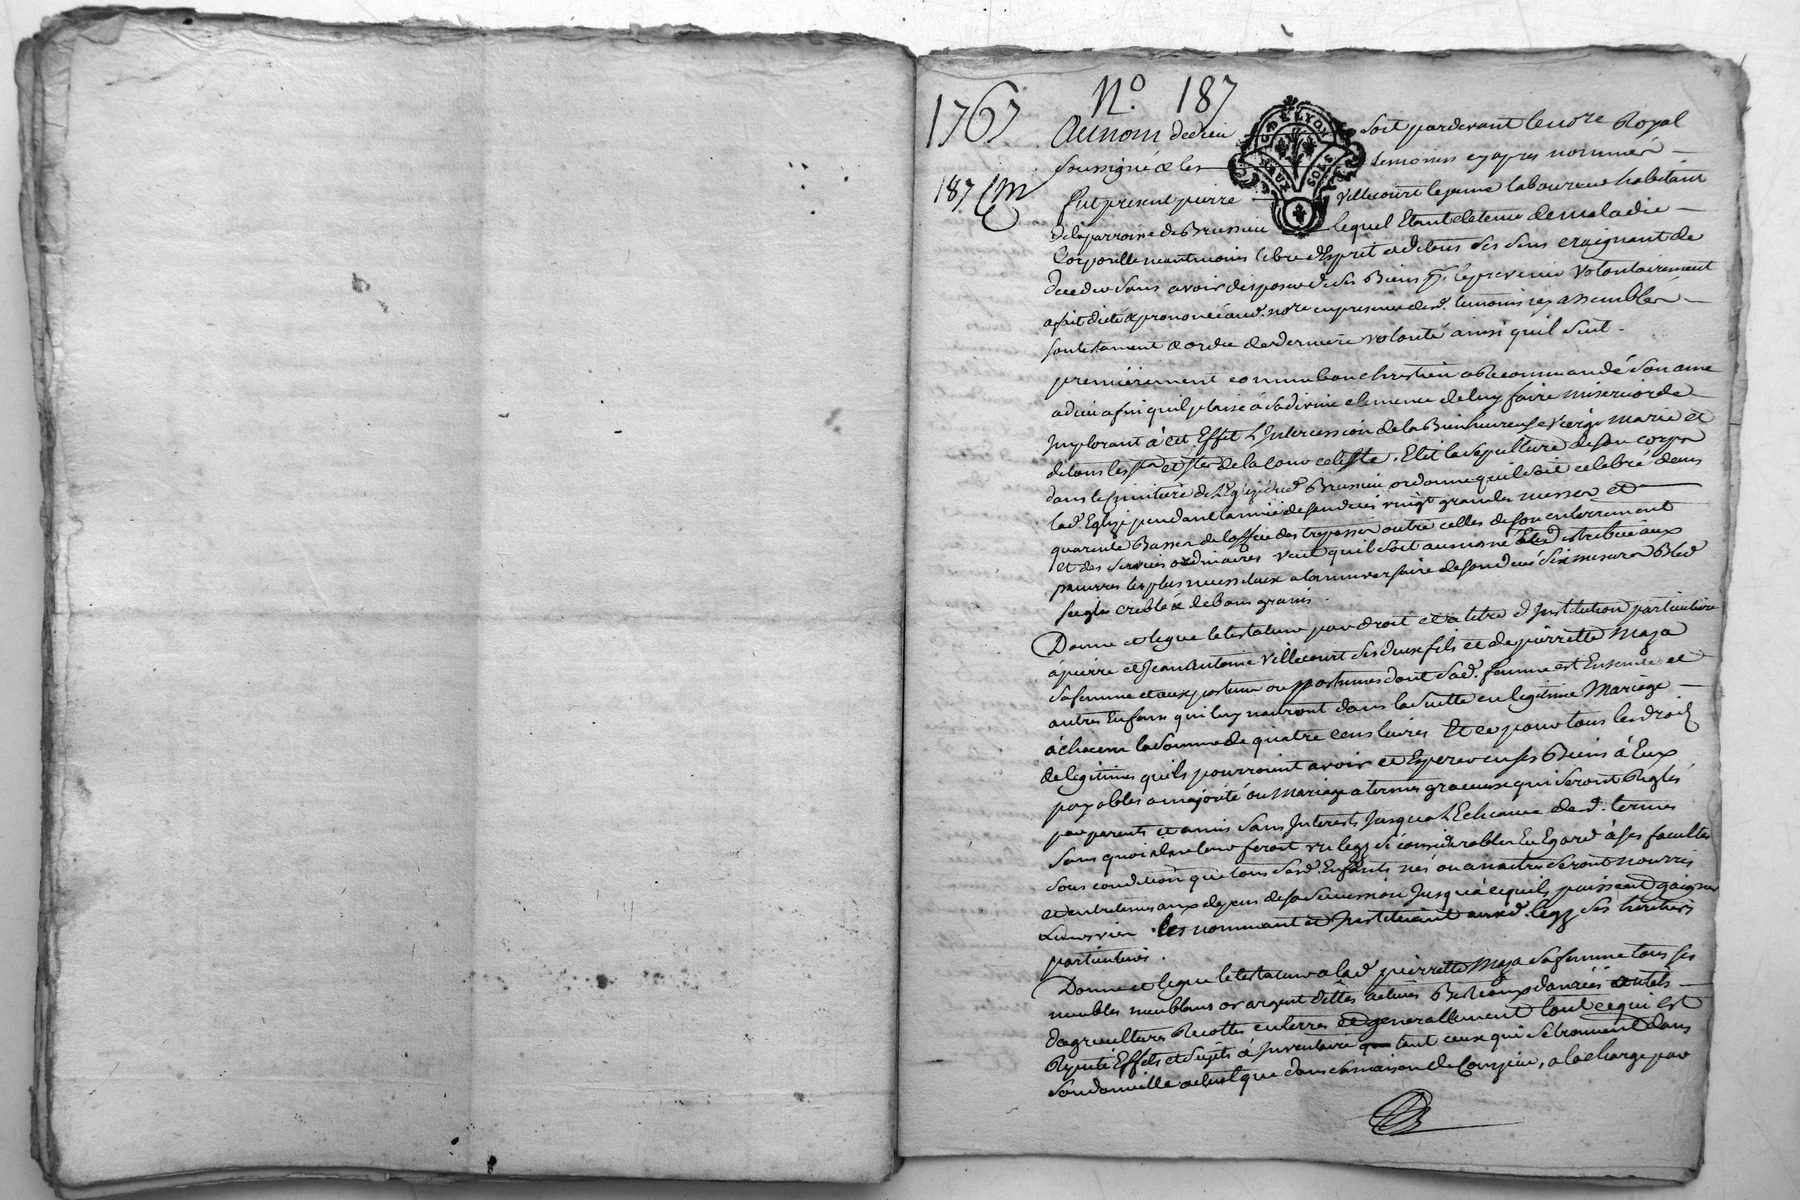 1767
N.º 187
187
G. DE LYON
DEUX SOLS
Au nom de dieu soit pardevant le no.re Royal
soussigné & les temoins cy apres nommés
fut present pierre Villecourt le jeune laboureur habitant
de la parroisse de Brussieu lequel Etant detenu de maladie
Corporelle neantmoins libre d'Esprit et de tous ses sens craignant de
deceder sans avoir disposé de ses Biens p.r le prevenir volontairement
a fait dicté & prononcé aud. no.re en presence desd. temoins icy assemblés
son testament & ordre de derniere volonté ainsi qu'il suit.
premierement comme bon chrestien a Recommandé son ame
a dieu afin qu'il plaise à sa divine clemence de luy faire misericorde
Implorant à cet Effet L'Intercession de la Bienheureuse Vierge marie et
de tous les s.ts et s.tes de la Cour celeste. Elit la sepulture de son corps
dans le cimitiere de L'Eglise dud. Brussieu ordonne qu'il soit celebré dans
lad. Eglise pendant l'année de son deces vingt grandes messes et
quarante Basses de l'office des trepassés outre celles de son enterrement
et des services ordinaires veut qu'il soit aumoné Et distribué aux
pauvres les plus necessiteux a l'anniversaire de son deces six mesures Bled
seigle criblé & de bons grains.
Donne et legue le testateur par droit et a titre d'Institution particuliere
à pierre et Jean Antoine Villecourt ses deux fils et de pierrette Maza
sa femme et aux postume ou postumes dont sad. femme est Enceinte et
autres Enfans qui luy naitront dans la suitte en legitime Mariage
à chacun la somme de quatre cens livres Et ce pour tous les droits
de legitimes qu'ils pourroient avoir et Esperer en ses Biens à Eux
payables a majorité ou Mariage a termes gracieux qui seront Reglés
par parents et amis sans Interests Jusqu'a L'Echeance desd. termes
sans quoi il ne leur feroit un legs si considerable En Egard à ses facultés
sous condition que tous sesd. Enfants nés ou a naitre seront nourris
et entretenus aux depens de sa succession Jusqu'à ce qu'ils puissent gaigner
Leurs vies. les nommant et Instituant auxd. legs ses heritiers
particuliers.
Donne et legue le testateur a lad. pierrette Maza sa femme tous ses
meubles meublans or argent dettes actives Bestiaux danrées outils
d'agriculture Recoltes en terres et generallement tout ce qui est
Reputé Effets et sujets à Inventaire tant ceux qui se trouvent dans
son domicille actuel que dans sa maison de Courzieu, a la charge par